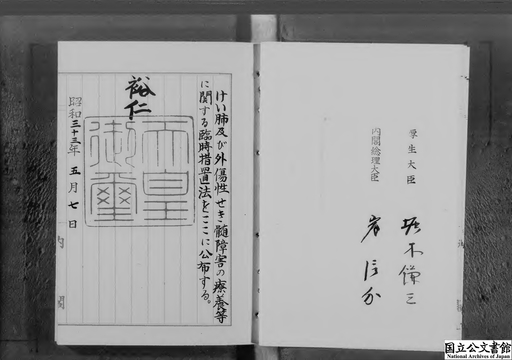 厚生大臣
堀木鎌三
内閣総理大臣
岸信介
けい肺及び外傷性せき髄障害の療養等
に関する臨時措置法をここに公布する。
裕仁
天皇
御璽
昭和三十三年五月七日
内閣
国立公文書館
National Archives of Japan